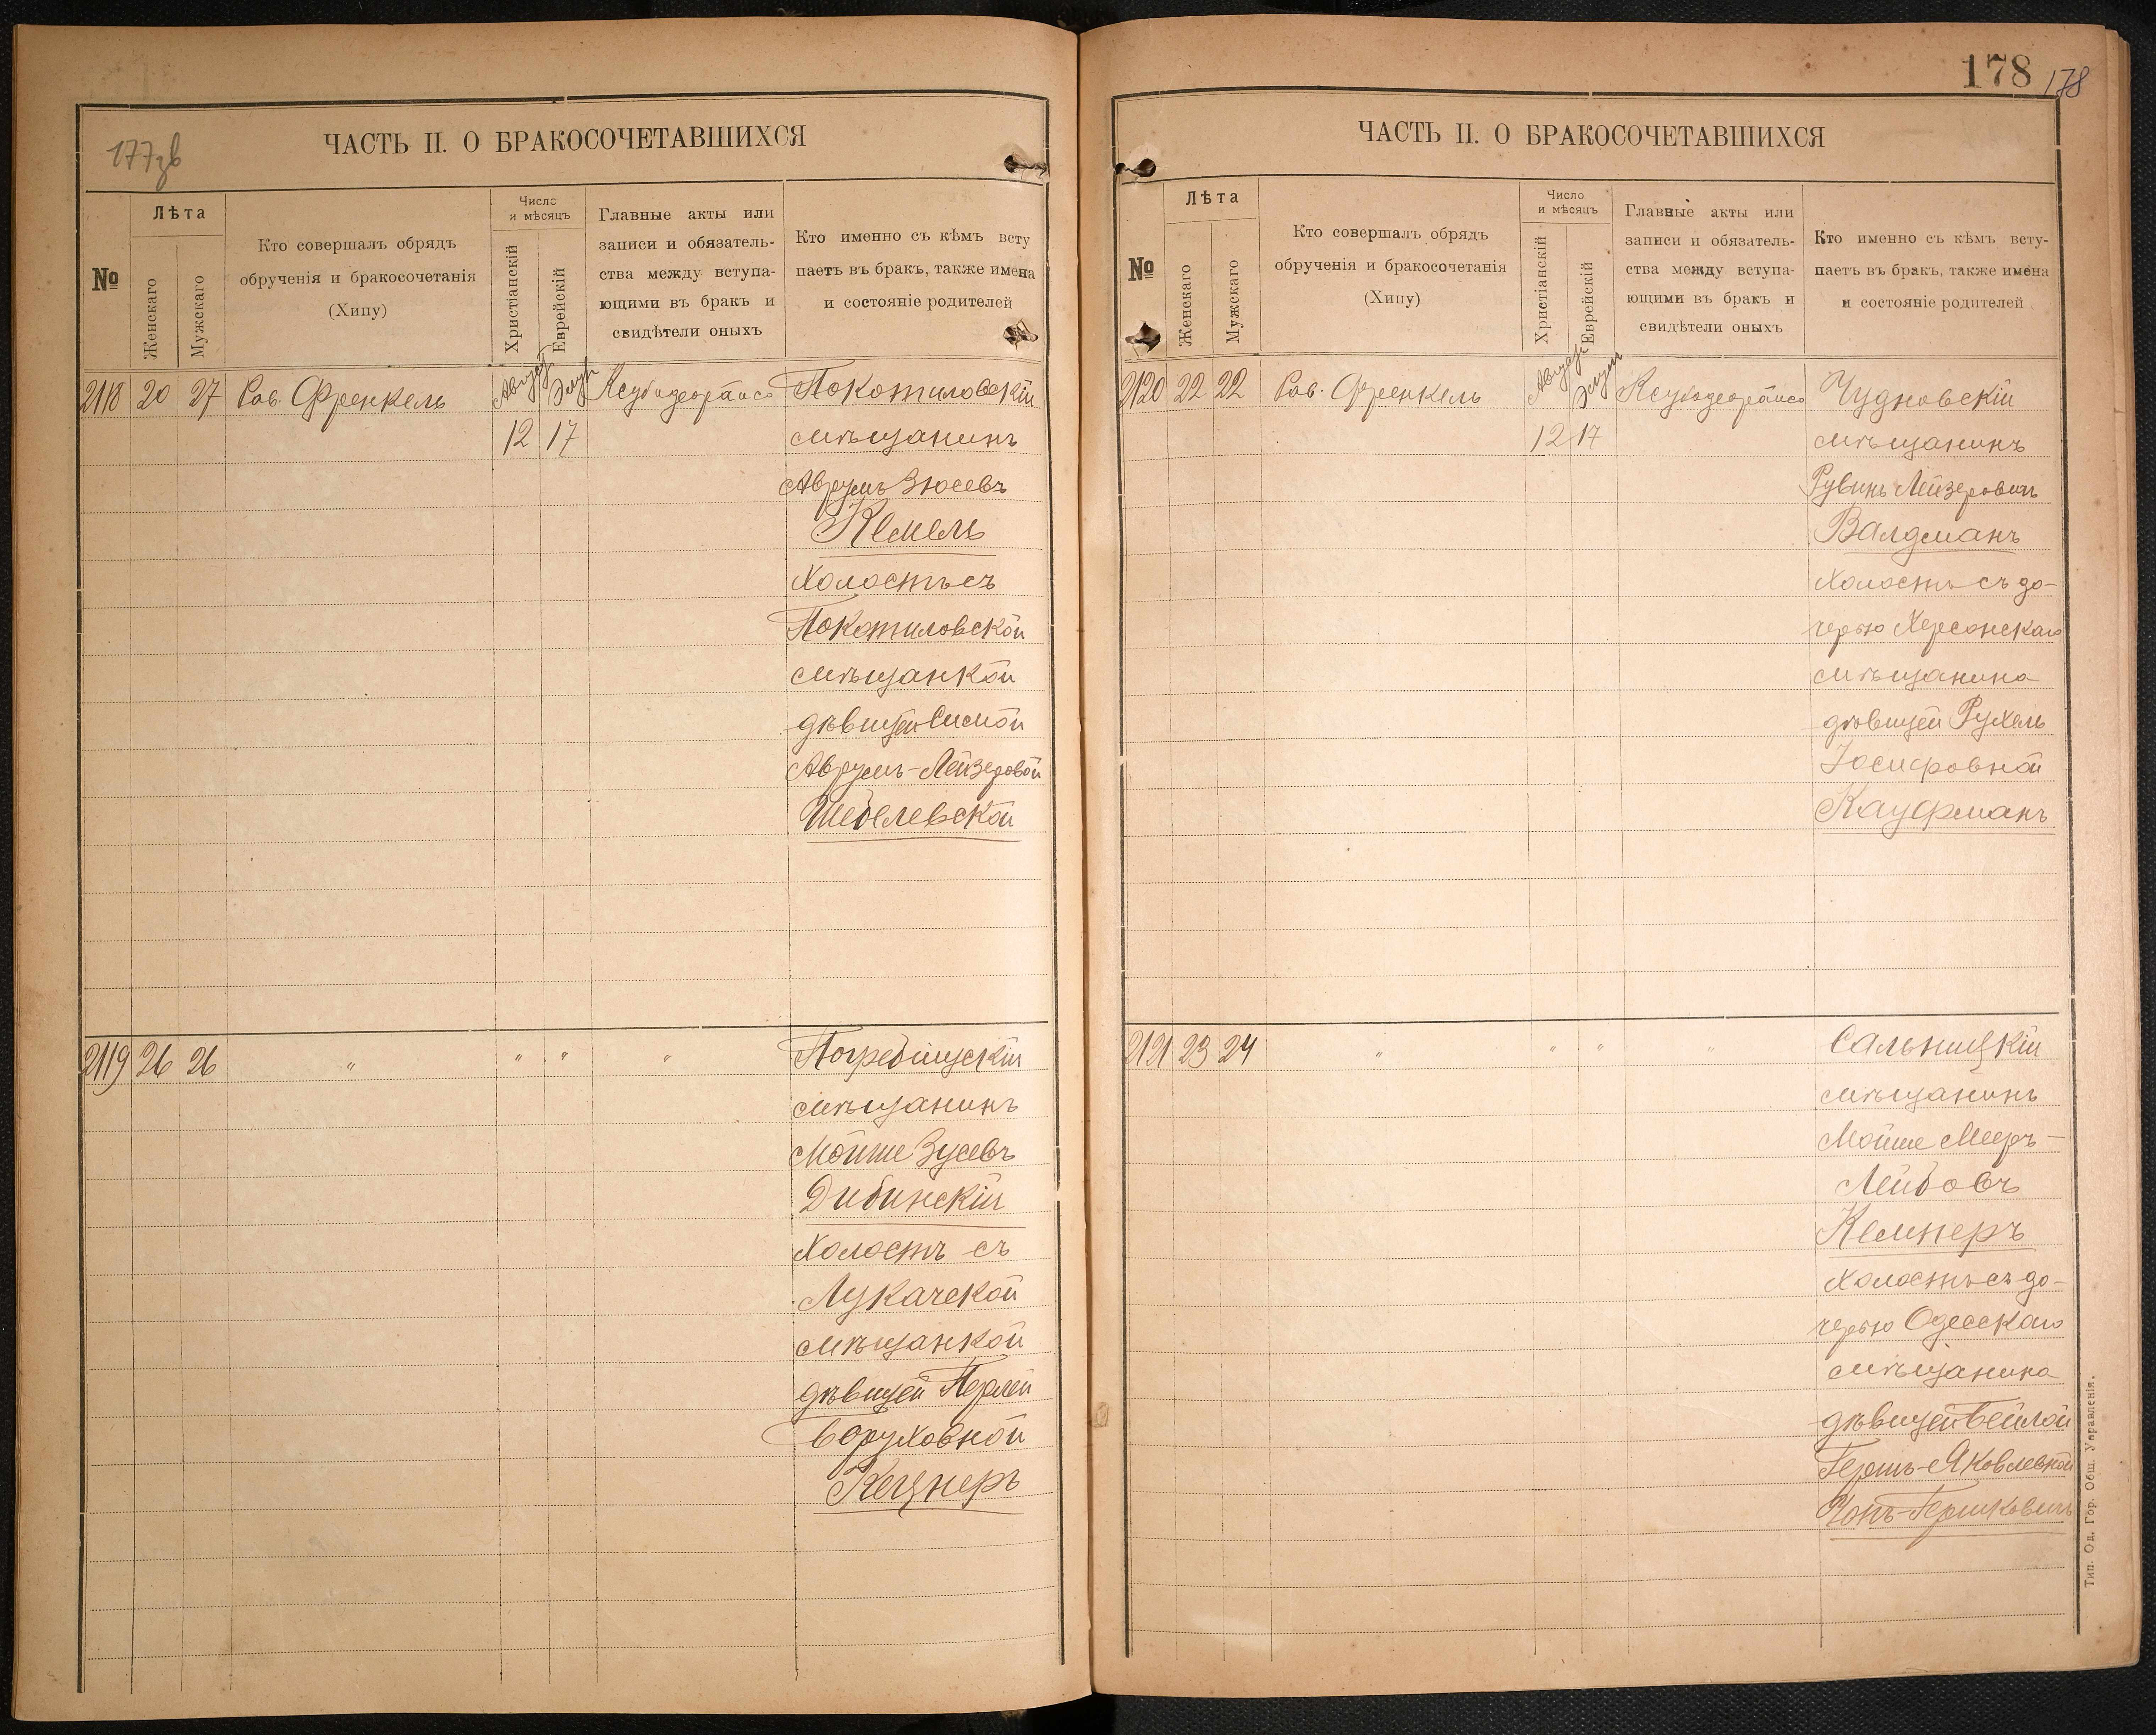 177зв
ЧАСТЬ II. О БРАКОСОЧЕТАВШИХСЯ
№
Лѣта
Женскаго
Мужскаго
Кто совершалъ обрядъ
обрученія и бракосочетанія
(Хипу)
Число
и мѣсяцъ
Христіанскій
Еврейскій
Главные акты или
записи и обязатель-
ства между вступа-
ющими въ бракъ и
свидѣтели оныхъ
Кто именно съ кѣмъ всту
паетъ въ бракъ, также имена
и состояніе родителей
2118 20 27 Рав. Френкель Август Элул Ксубодеорайсо Покотиловскій
12 17 мѣщанинъ
Аврумъ Зюсевъ
Кемель
холостъ съ
Покотиловской
мѣщанкой
дѣвицей Симой
Аврумъ-Лейзеровой
Шебелевской
2119 26 26 " " " " Погребищускій
мѣщанинъ
Мойше Зусевъ
Дибинскій
Холостъ съ
Лукачской
мѣщанкой
дѣвицей Перлей
Боруховной
Кецнеръ
178 178
ЧАСТЬ II. О БРАКОСОЧЕТАВШИХСЯ
№
Лѣта
Женскаго
Мужскаго
Кто совершалъ обрядъ
обрученія и бракосочетанія
(Хипу)
Число
и мѣсяцъ
Христіанскій
Еврейскій
Главные акты или
записи и обязатель-
ства между вступа-
ющими въ бракъ и
свидѣтели оныхъ
Кто именно съ кѣмъ всту-
паетъ въ бракъ, также имена
и состояніе родителей
2120 22 22 Рав. Френкель Август Элул Ксубодеорайсо Чудновскій
12 17 мѣщанинъ
Рувинъ Лейзеровичъ
Валдманъ
холостъ съ до-
черью Херсонскаго
мѣщанина
дѣвицей Рухель
Іосифовной
Кауфманъ
2121 23 24 " " " " Сальницкій
мѣщанинъ
Мойше Мееръ-
Лейбовъ
Кемнеръ
холостъ съ до-
черью Одесскаго
мѣщанина
дѣвицей Бейлой
Гершъ-Яковлевной
Чопъ-Гершковичъ
Тип. Од. Гор. Общ. Управленія.